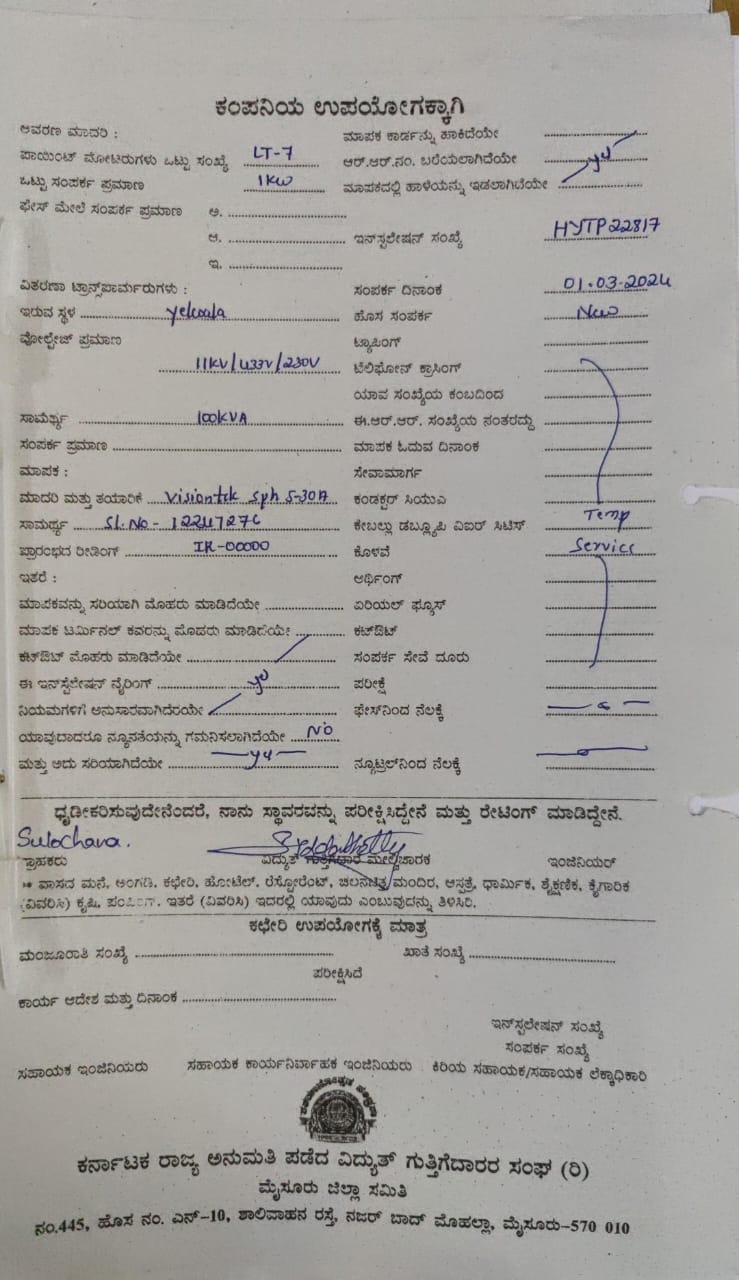 ಕಂಪನಿಯ ಉಪಯೋಗಕ್ಕಾಗಿ
ಆವರಣ ಮಾದರಿ : ಮಾಪಕ ಕಾರ್ಡನ್ನು ಹಾಕಿದೆಯೇ
ಪಾಯಿಂಟ್ ಮೋಟರುಗಳು ಒಟ್ಟು ಸಂಖ್ಯೆ LT-7 ಆರ್.ಆರ್.ನಂ. ಬರೆಯಲಾಗಿದೆಯೇ
ಒಟ್ಟು ಸಂಪರ್ಕ ಪ್ರಮಾಣ 1KW ಮಾಪಕದಲ್ಲಿ ಹಾಳೆಯನ್ನು ಇಡಲಾಗಿಟೆಯೇ
ಫೇಸ್ ಮೇಲೆ ಸಂಪರ್ಕ ಪ್ರಮಾಣ ಅ.
ಆ. ಇನ್‌ಸ್ಟಲೇಷನ್ ಸಂಖ್ಯೆ HYTP22817
ಇ.
ವಿತರಣಾ ಟ್ರಾನ್ಸ್‌ಪಾರ್ಮರುಗಳು : ಸಂಪರ್ಕ ದಿನಾಂಕ 01.03.2024
ಇರುವ ಸ್ಥಳ ಹೊಸ ಸಂಪರ್ಕ New
ವೋಲ್ಟೇಜ್ ಪ್ರಮಾಣ ಟ್ಯಾಪಿಂಗ್
11KV/433V/230V ಟೆಲಿಫೋನ್ ಕ್ರಾಸಿಂಗ್
ಯಾವ ಸಂಖ್ಯೆಯ ಕಂಬದಿಂದ
ಸಾಮರ್ಥ್ಯ 100KVA ಈ.ಆರ್.ಆರ್. ಸಂಖ್ಯೆಯ ನಂತರದ್ದು
ಸಂಪರ್ಕ ಪ್ರಮಾಣ ಮಾಪಕ ಓದುವ ದಿನಾಂಕ
ಮಾಪಕ : ಸೇವಾಮಾರ್ಗ
ಮಾದರಿ ಮತ್ತು ತಯಾರಿಕೆ Visiontek Sph 5-30A ಕಂಡಕ್ಟರ್ ಸಿಯುಎ
ಸಾಮರ್ಥ್ಯ Sl.No- ಕೇಬಲ್ಲು ಡಬ್ಲ್ಯೂಪಿ ವಿಐರ್ ಸಿಟಿಸ್ Temp
ಪ್ರಾರಂಭದ ರೀಡಿಂಗ್ IR-00000 ಕೊಳವೆ Service
ಇತರೆ : ಅರ್ಥಿಂಗ್
ಮಾಪಕವನ್ನು ಸರಿಯಾಗಿ ಮೊಹರು ಮಾಡಿದೆಯೇ ಏರಿಯಲ್ ಫ್ಯೂಸ್
ಮಾಪಕ ಟರ್ಮಿನಲ್ ಕವರನ್ನು ಮೊದರು ಮಾಡಿದೆಯೇ ಕಟ್‌ಔಟ್
ಕಟ್‌ಔಟ್ ಮೊಹರು ಮಾಡಿದೆಯೇ ಸಂಪರ್ಕ ಸೇವೆ ದೂರು
ಈ ಇನ್‌ಸ್ಟೆಲೇಷನ್ ನೈರಿಂಗ್ ಪರೀಕ್ಷೆ
ನಿಯಮಗಳಿಗೆ ಅನುಸಾರವಾಗಿದೆರಯೇ ಫೇಸ್‌ನಿಂದ ನೆಲಕ್ಕೆ
ಯಾವುದಾದರೂ ನ್ಯೂನತೆಯನ್ನು ಗಮನಿಸಲಾಗಿದೆಯೇ NO
ಮತ್ತು ಅದು ಸರಿಯಾಗಿದೆಯೇ ನ್ಯೂಟ್ರಲ್‌ನಿಂದ ನೆಲಕ್ಕೆ
ಧೃಡೀಕರಿಸುವುದೇನೆಂದರೆ, ನಾನು ಸ್ಥಾವರವನ್ನು ಪರೀಕ್ಷಿಸಿದ್ದೇನೆ ಮತ್ತು ರೇಟಿಂಗ್ ಮಾಡಿದ್ದೇನೆ.
Sulochana.
ಗ್ರಾಹಕರು ವಿದ್ಯುತ್ ಗುತ್ತಿಗೆದಾರ ಮೇಲ್ವಿಚಾರಕ ಇಂಜಿನಿಯರ್
ವಾಸದ ಮನೆ, ಅಂಗಡಿ, ಕಛೇರಿ, ಹೋಟೆಲ್, ರೆಸ್ಟೋರೆಂಟ್, ಚಲನಚಿತ್ರ ಮಂದಿರ, ಆಸ್ಪತ್ರೆ, ಧಾರ್ಮಿಕ, ಶೈಕ್ಷಣಿಕ, ಕೈಗಾರಿಕ
(ವಿವರಿಸಿ) ಕೃಷಿ, ಇತರೆ (ವಿವರಿಸಿ) ಇದರಲ್ಲಿ ಯಾವುದು ಎಂಬುವುದನ್ನು ತಿಳಿಸಿರಿ.
ಕಛೇರಿ ಉಪಯೋಗಕ್ಕೆ ಮಾತ್ರ
ಮಂಜೂರಾತಿ ಸಂಖ್ಯೆ ಖಾತೆ ಸಂಖ್ಯೆ
ಪರೀಕ್ಷಿಸಿದೆ
ಕಾರ್ಯ ಆದೇಶ ಮತ್ತು ದಿನಾಂಕ
ಇನ್‌ಸ್ಟಲೇಷನ್ ಸಂಖ್ಯೆ
ಸಂಪರ್ಕ ಸಂಖ್ಯೆ
ಸಹಾಯಕ ಇಂಜಿನಿಯರು ಸಹಾಯಕ ಕಾರ್ಯನಿರ್ವಾಹಕ ಇಂಜಿನಿಯರು ಕಿರಿಯ ಸಹಾಯಕ/ಸಹಾಯಕ ಲೆಕ್ಕಾಧಿಕಾರಿ
ಕರ್ನಾಟಕ ರಾಜ್ಯ ಅನುಮತಿ ಪಡೆದ ವಿದ್ಯುತ್ ಗುತ್ತಿಗೆದಾರರ ಸಂಘ (ರಿ)
ಮೈಸೂರು ಜಿಲ್ಲಾ ಸಮಿತಿ
ನಂ.445, ಹೊಸ ನಂ. ಎನ್-10, ಶಾಲಿವಾಹನ ರಸ್ತೆ, ನಜರ್ ಬಾದ್ ಮೊಹಲ್ಲಾ, ಮೈಸೂರು-570 010